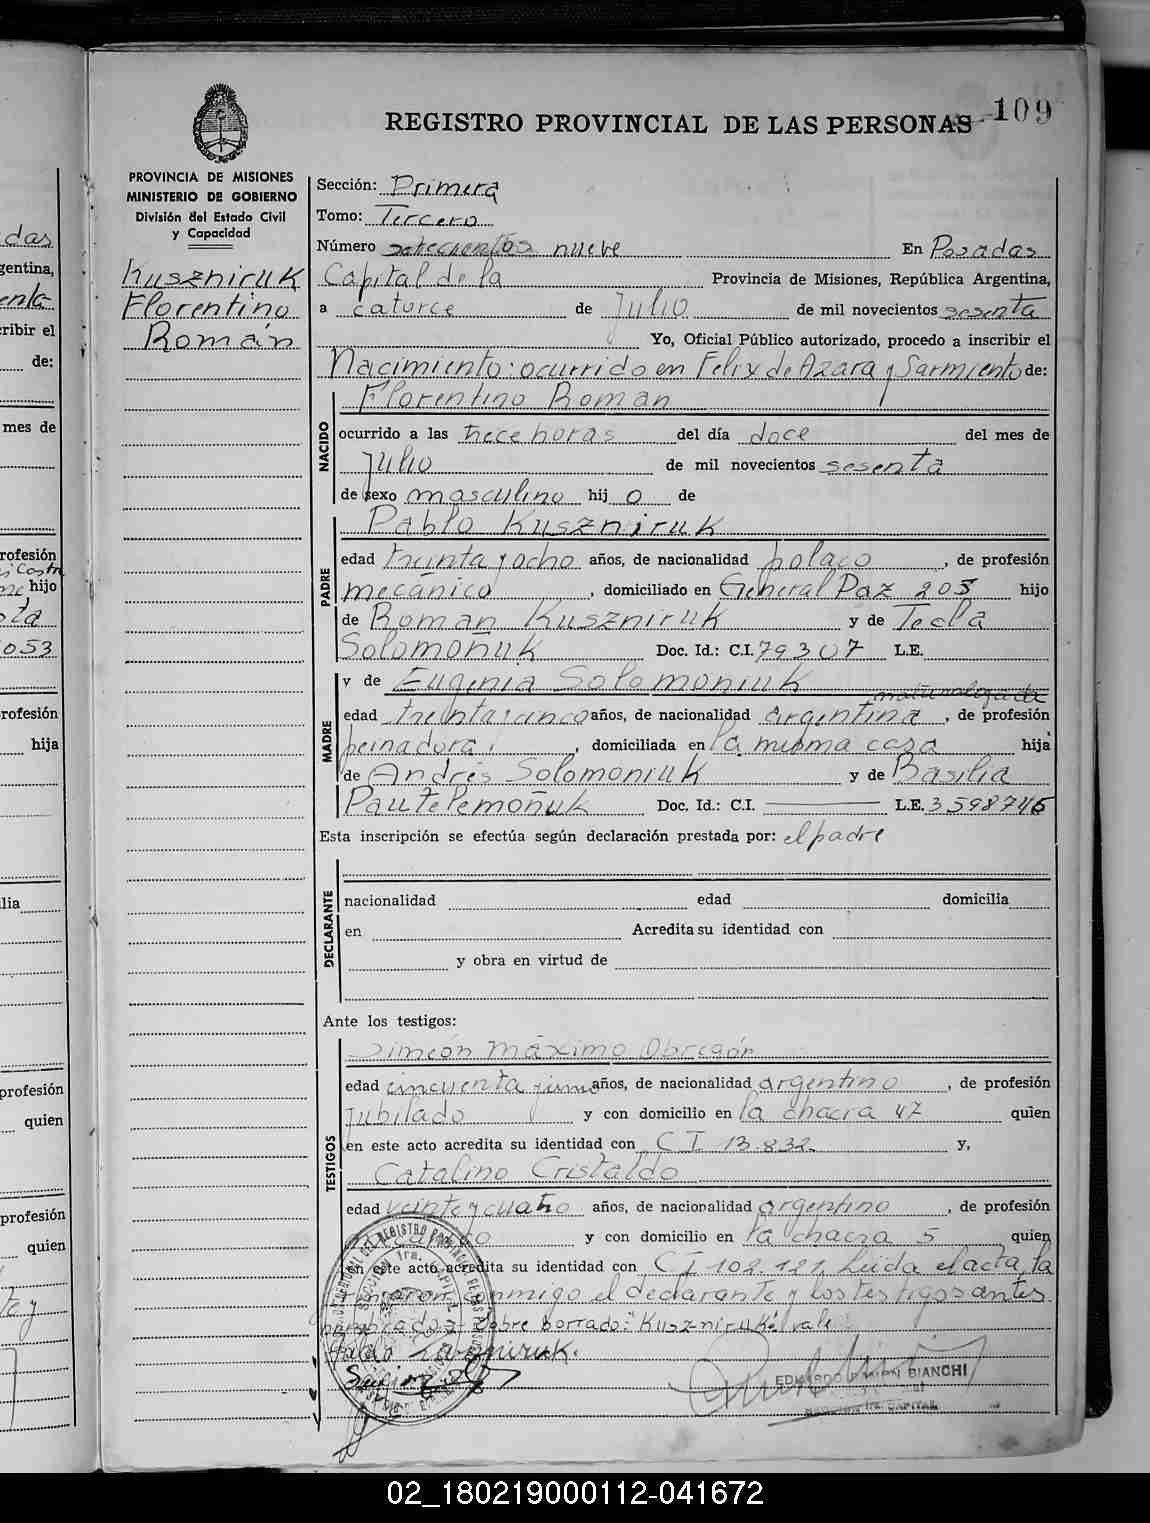 REGISTRO PROVINCIAL DE LAS PERSONAS 109
PROVINCIA DE MISIONES
MINISTERIO DE GOBIERNO
División del Estado Civil
y Capacidad
Kuszniruk
Florentino
Román
Sección: Primera
Tomo: Tercero
Número setecientos nueve En Posadas
Capital de la Provincia de Misiones, República Argentina,
a catorce de Julio de mil novecientos sesenta
Yo, Oficial Público autorizado, procedo a inscribir el
Nacimiento: ocurrido en Felix de Azara y Sarmiento de:
NACIDO
Florentino Roman
ocurrido a las trece horas del día doce del mes de
Julio de mil novecientos sesenta
de sexo masculino hij o de
PADRE
Pablo Kuszniruk
edad treinta y ocho años, de nacionalidad polaco, de profesión
mecánico, domiciliado en General Paz 205 hijo
de Roman Kuszniruk y de Tecla
Solomoñuk Doc. Id.: C.I. 79307 L.E.
MADRE
y de Eugenia Solomoniuk
naturalizada
edad treinta y cinco años, de nacionalidad argentina, de profesión
peinadora, domiciliada en la misma casa hija
de Andrés Solomoniuk y de Basilia
Doc. Id.: C.I. L.E. 3598746
Esta inscripción se efectúa según declaración prestada por: el padre
DECLARANTE
nacionalidad edad domicilia
en Acredita su identidad con
y obra en virtud de
Ante los testigos:
TESTIGOS
Simeón Máximo Obregón
edad cincuenta y uno años, de nacionalidad argentino, de profesión
Jubilado y con domicilio en la chacra 47 quien
en este acto acredita su identidad con C I 13.832 y,
Catalino Cristaldo
edad veinte y cuatro años, de nacionalidad argentino, de profesión
y con domicilio en la chacra 5, quien
en este acto acredita su identidad con C I 102.121. Leida el acta, la
firmaron conmigo el declarante y los testigos antes
nombrados. Sobre borrado: "Kuszniruk": vale
Pablo Kuszniruk.
EDUARDO RAMON BIANCHI
das
gentina,
enta
cribir el
de:
mes de
rofesión
hijo
053
rofesión
hija
ilia
profesión
quien
profesión
quien
02_180219000112-041672